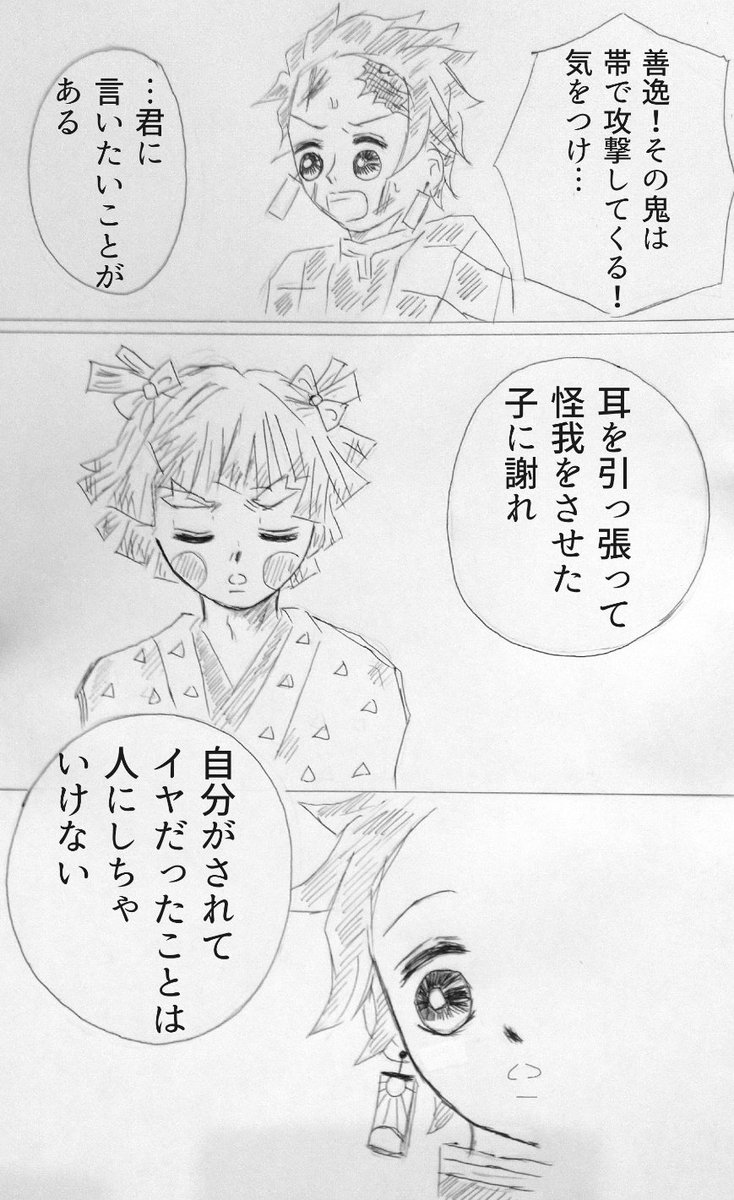 善逸！その鬼は
帯で攻撃してくる！
気をつけ…
…君に
言いたいことが
ある
耳を引っ張って
怪我をさせた
子に謝れ
自分がされて
イヤだったことは
人にしちゃ
いけない